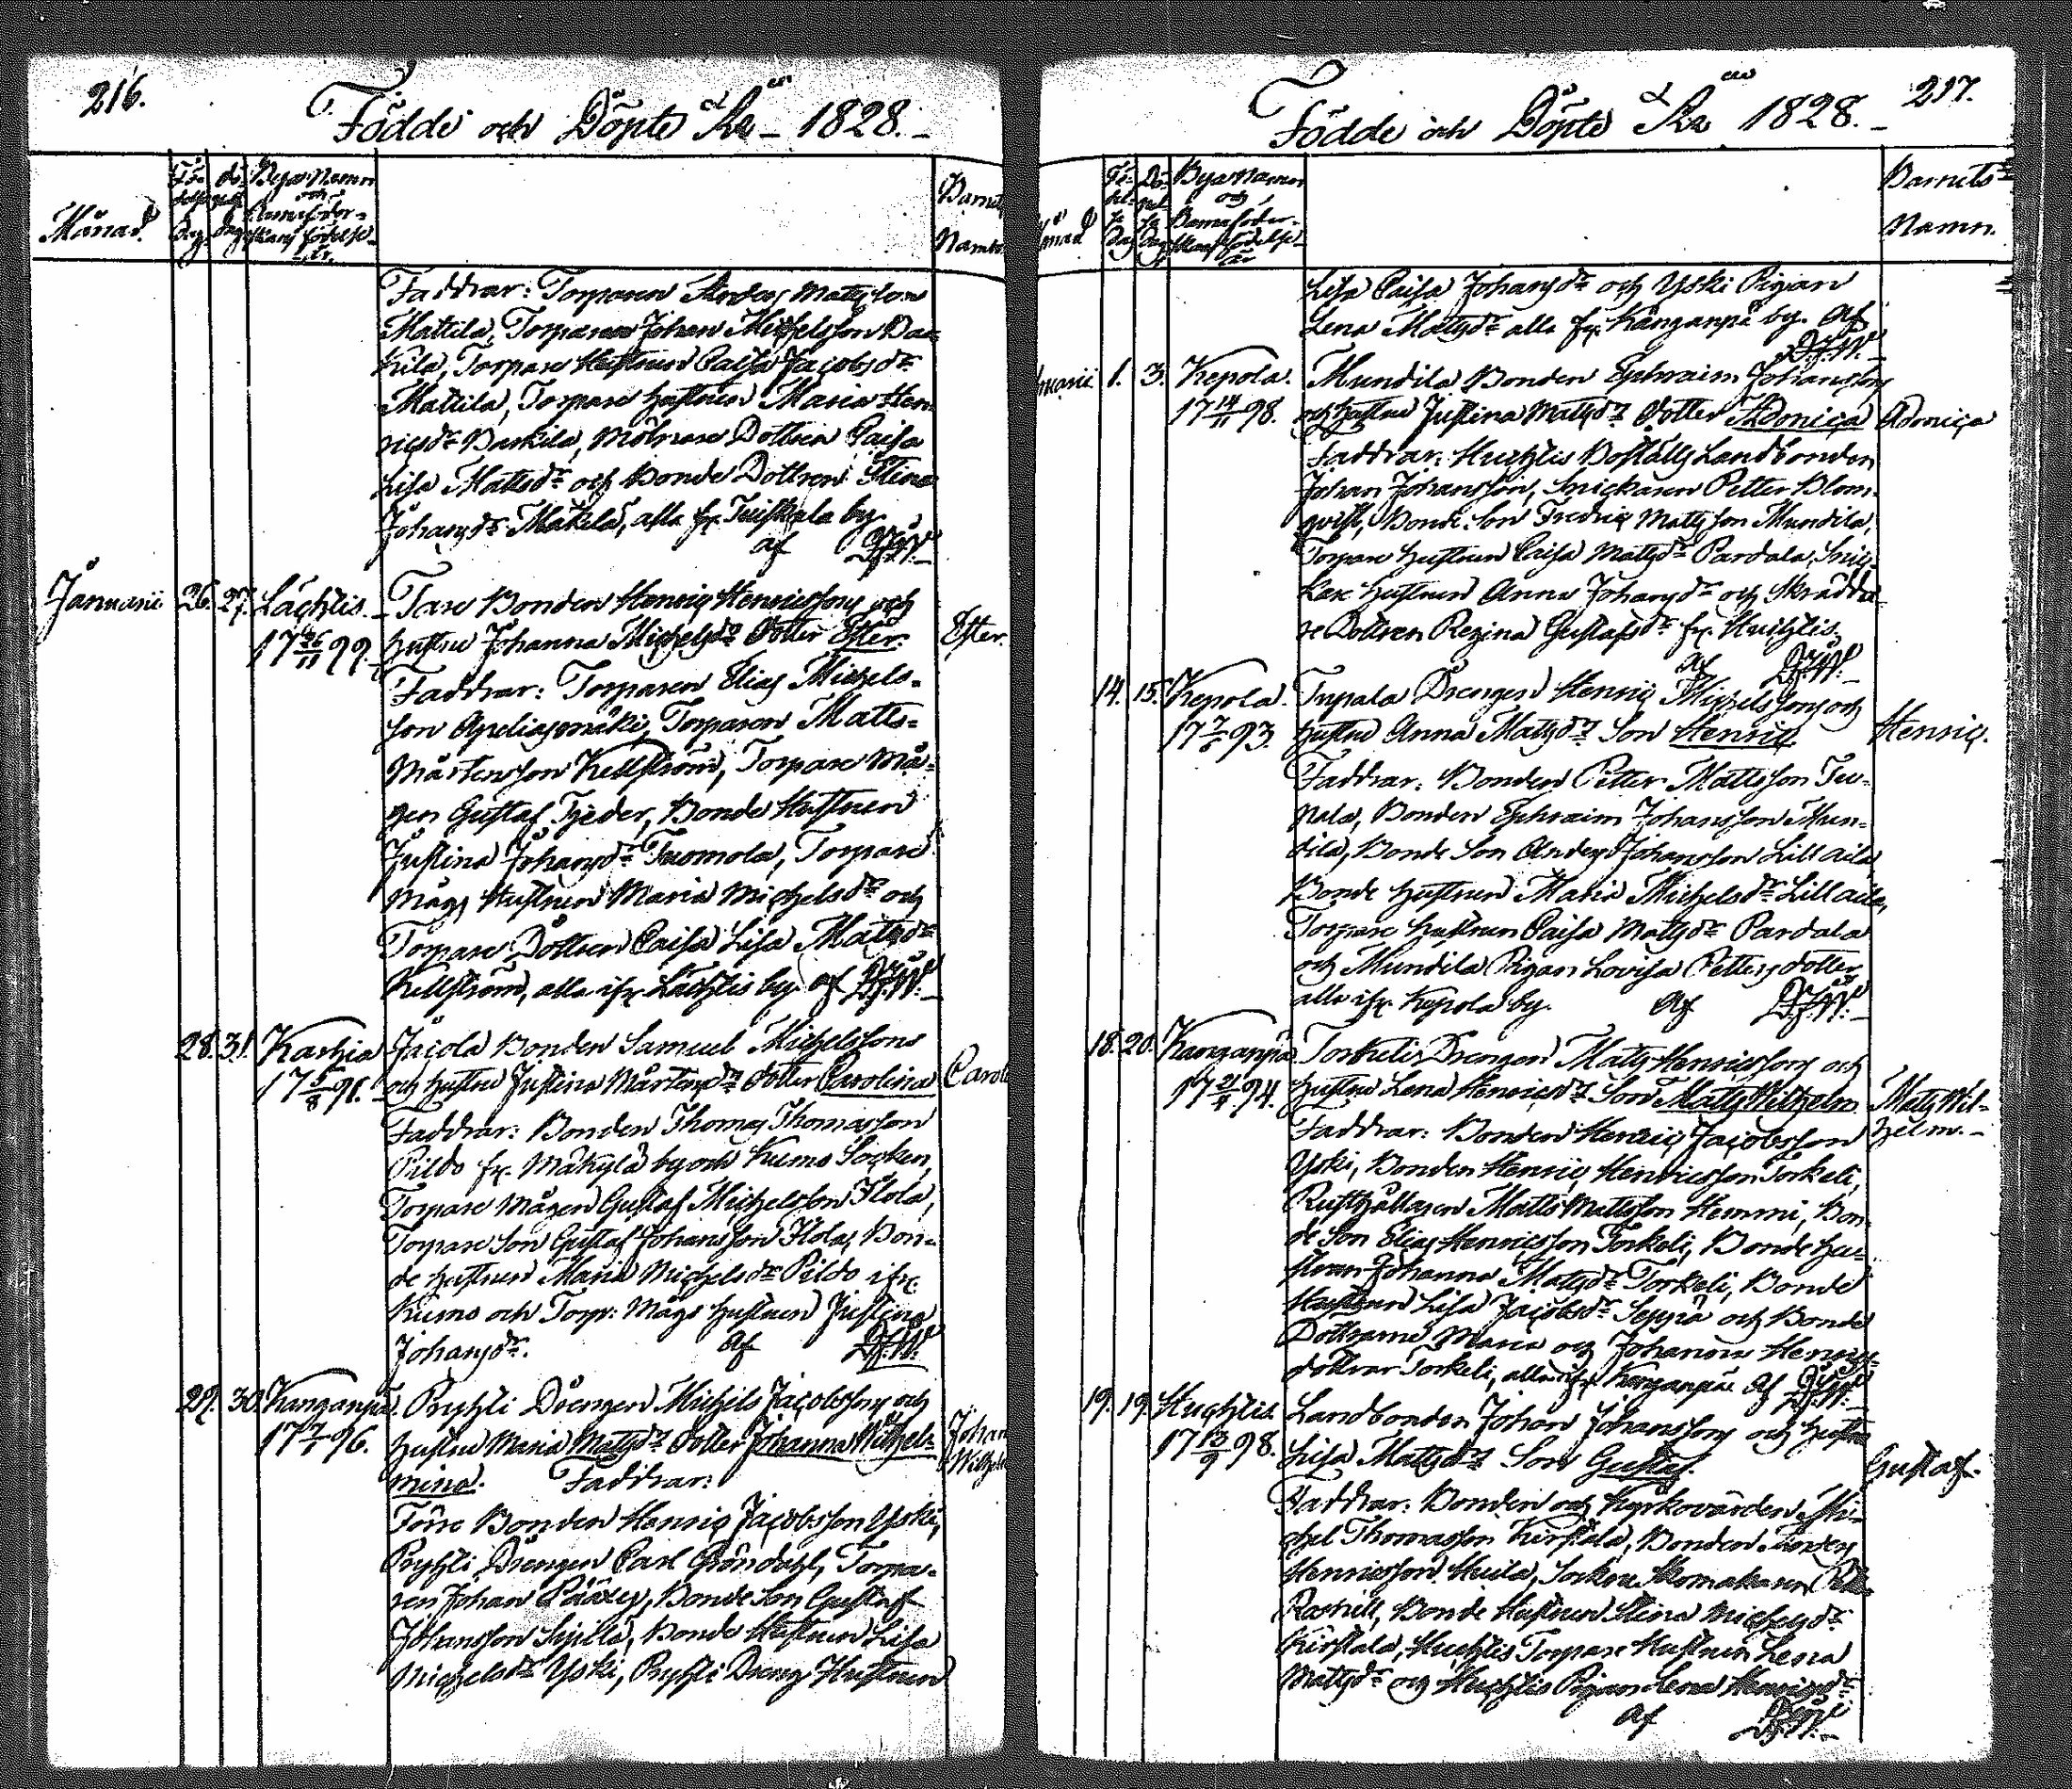 216.
Födde och Döpte År 1828.
Månad.
Fö-
delse
Dag.
dö-
pelse
dag
Byar Namn
och
Barnaföder-
skans födelse-
År.
Barnets
Namn
Faddrar: Torparen Anders Mattsson
Mattila, Torparen Johan Michelsson
Torpare Hustrun Caisa Jacobsdr
Mattila, Torpare hustrun Maria Hen-
ricsdr Dottren Caisa
Lisa Mattsdr och Bonde Dottren Stina
Johansdr Mäkelä, alla fr. Tuiskula by.
af
Januarii 26. 27. Lächlis. Tare Bonden Henric Henricssons och
17 26/11 99. hustru Johanna Michelsdrs dotter Ester. Ester.
Faddrar: Torparen Elias Michels-
son Torparen Matts
Mårtensson Kellström, Torpare må-
gen Gustaf Tjeder, Bonde Hustrun
Justina Johansdr Tuomola, Torpare
Mågs Hustrun Maria Michelsdr och
Torpare Dottren Caisa Lisa Mattsdr
Kellström, alla ifr. Lächlis by. af
28. 31. Karhia Jacola Bonden Samuel Michelssons
17 5/8 91. och hustru Justina Mårtensdrs dotter Carolina Carol
Faddrar: Bonden Thomas Thomasson
Pildo fr. Mäkylä by och Kumo Socken,
Torpare Mågen Gustaf Michelsson Flola,
Torpare Son Gustaf Johansson Flola, Bon-
de hustrun Maria Michelsdr Pildo ifr.
Kumo och Torp: Mågs hustrun Justina
Johansdr. af
29. 30. Kanganpä. Pryhli Drengen Michels Jacobssons och
17 7/1 96. hustru Maria Mattsdrs dotter Johanna Wilhel- Johan
mina. Faddrar: Wilhel
Förre Bonden Henric Jacobsson Yski,
Pryhli Drengen Carl Gröndahl, Torpa-
ren Johan Bonde Son Gustaf
Johansson Sipilä, Bonde Hustrun Lisa
Michelsdr Yski, Pryhli Dreng Hustrun
217.
Födde och Döpte År 1828.
Månad
Fö-
del-
se
Dag
Dö-
pel-
se
Dag
Byar Namn
och
Barnaföder-
skans födelse
år
Barnets
Namn.
Lisa Caisa Johansdr och Yski Pigan
Lena Mattsdr alla fr. Kanganpä by. Af
nuarii 1. 3. Kepola. Mundila Bonden Ephraim Johanssons
17 14/11 98. och hustru Justina Mattsdrs dotter Adonica Adonica
Faddrar: Huchtis Boställs Landbonden
Johan Johansson, Snickaren Petter Blom-
qvist, Bonde Son Fredric Mattsson Mundila,
Torpare hustrun Caisa Mattsdr Pardala, Snic-
kare hustrun Anna Johansdr och Skrädda-
re Dottren Regina Gustafsdr fr. Huchtis.
Af
14. 15. Kepola. Tupala Drengen Henric Michelssons och
17 7/6 93. hustru Anna Mattsdrs Son Henric Henric.
Faddrar: Bonden Petter Mattsson Tu-
pala, Bonden Ephraim Johansson Mun-
dila, Bonde Son Anders Johansson Lill aila
Bonde hustrun Maria Michelsdr Lill aila,
Torpare hustrun Caisa Mattsdr Pardala
och Mundila Pigan Lovisa Petters dotter
alla ifr. Kepola by. Af
18. 20. Kanganpä Torkeli Drengen Matts Henricssons och
94. hustru Lena Henricsdrs Son Matts Wilhelm Matts Wil-
Faddrar: Bonden Henric Jacobsson helm.
Yski, Bonden Henric Henricsson Torkeli,
Rusthållaren Matts Mattsson Hemmi, Bon-
de Son Elias Henricsson Torkeli, Bonde hu-
strun Johanna Mattsdr Torkeli, Bonde
Hustrun Lisa Jacobsdr Seppä och Bonde
Döttrarne Maria och Johanna Henrics-
döttrar Torkeli, alla ifr. Kanganpä. Af
19. 19. Huchtis. Landbonden Johan Johanssons och hustru
17 13/9 98. Lisa Mattsdrs Son Gustaf. Gustaf.
Faddrar: Bonden och Kyrkovärden Mi-
chel Thomasson Kirstala, Bonden Anders
Henricsson Heila, Socken Skomakaren
Bonde Hustrun Stina Michelsdr
Kirstala, Huchtis Torpare Hustrun Lena
Mattsdr och Huchtis Pigan Lena Henricsdr
Af